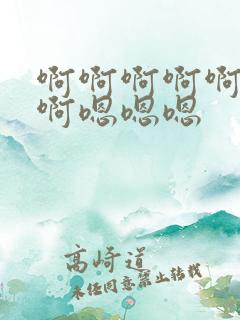 啊啊啊啊啊
啊嗯嗯嗯
高崎道
未经同意禁止转载